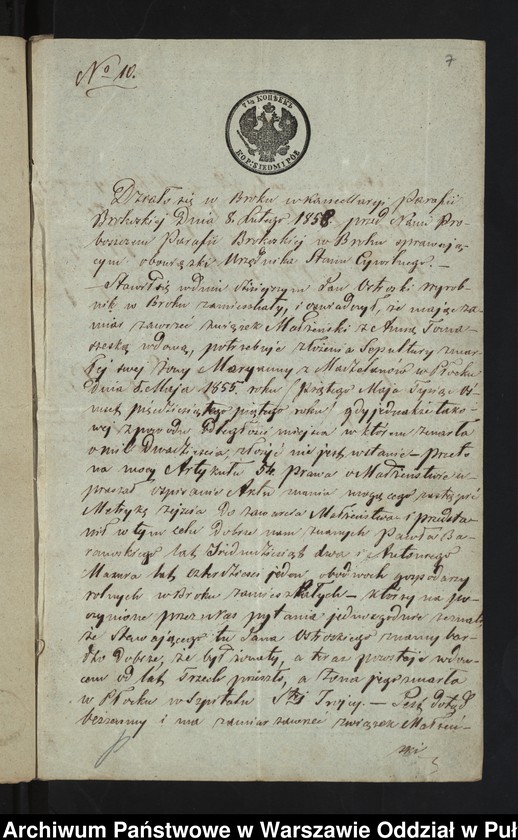 7
No 10.
7½ КОПѢЕКЪ
KOP: SIEDM I PÓŁ
Działo się w Broku w Kancellaryi Parafii
Brokowskiej Dnia 8. Lutego 1858. przed Nami Pro-
boszczem Parafii Brokowskiej w Broku sprawują-
cym obowiązki Urzędnika Stanu Cywilnego. —
Stawił się w dniu dzisiejszym Jan Ostoski wyrob-
nik w Broku zamieszkały, i oświadczył, że mając za-
miar zawrzeć związek Małżeński z Anną Toma-
szeską wdową, potrzebuje złożenia Sepultury zmar-
łej swej Żony Maryanny z w Płocku
dnia 5. Maja 1855. roku (piątego Maja Tysiąc Os-
mset pięćdziesiątego piątego roku) gdy jednakże tako-
wej z powodu odległości miejsca w którem zmarła
o mil Dwadzieścia, złożyć nie jest w stanie — przeto
na mocy Artykułu 54. Prawa o Małżeństwie u-
praszał o spisanie Aktu znania mogącego zastąpić
Metrykę zejścia do zawarcia Małżeństwa i przedsta-
wił w tym celu dobrze nam znanych Pawła Ba-
ranoskiego lat Trzidzieściąt dwa i Antoniego
Mazura lat czterdzieści jeden, obodwoch gospodarzy
rolnych w Broku zamieszkałych — którzy na po-
czynione przez Nas pytania jednozgodnie zeznali
że Stawającego tu Jana Ostoskiego znamy bar-
dzo dobrze, że był żonaty, a teraz pozostaje wdow-
cem od lat Trzech przeszło, a żona jego zmarła
w Płocku w Szpitalu Stej Trójcy. — Jest dotąd
bezżenny i ma zamiar zawrzeć związek Małżeń-
ski
Archiwum Państwowe w Warszawie Oddział w Puł